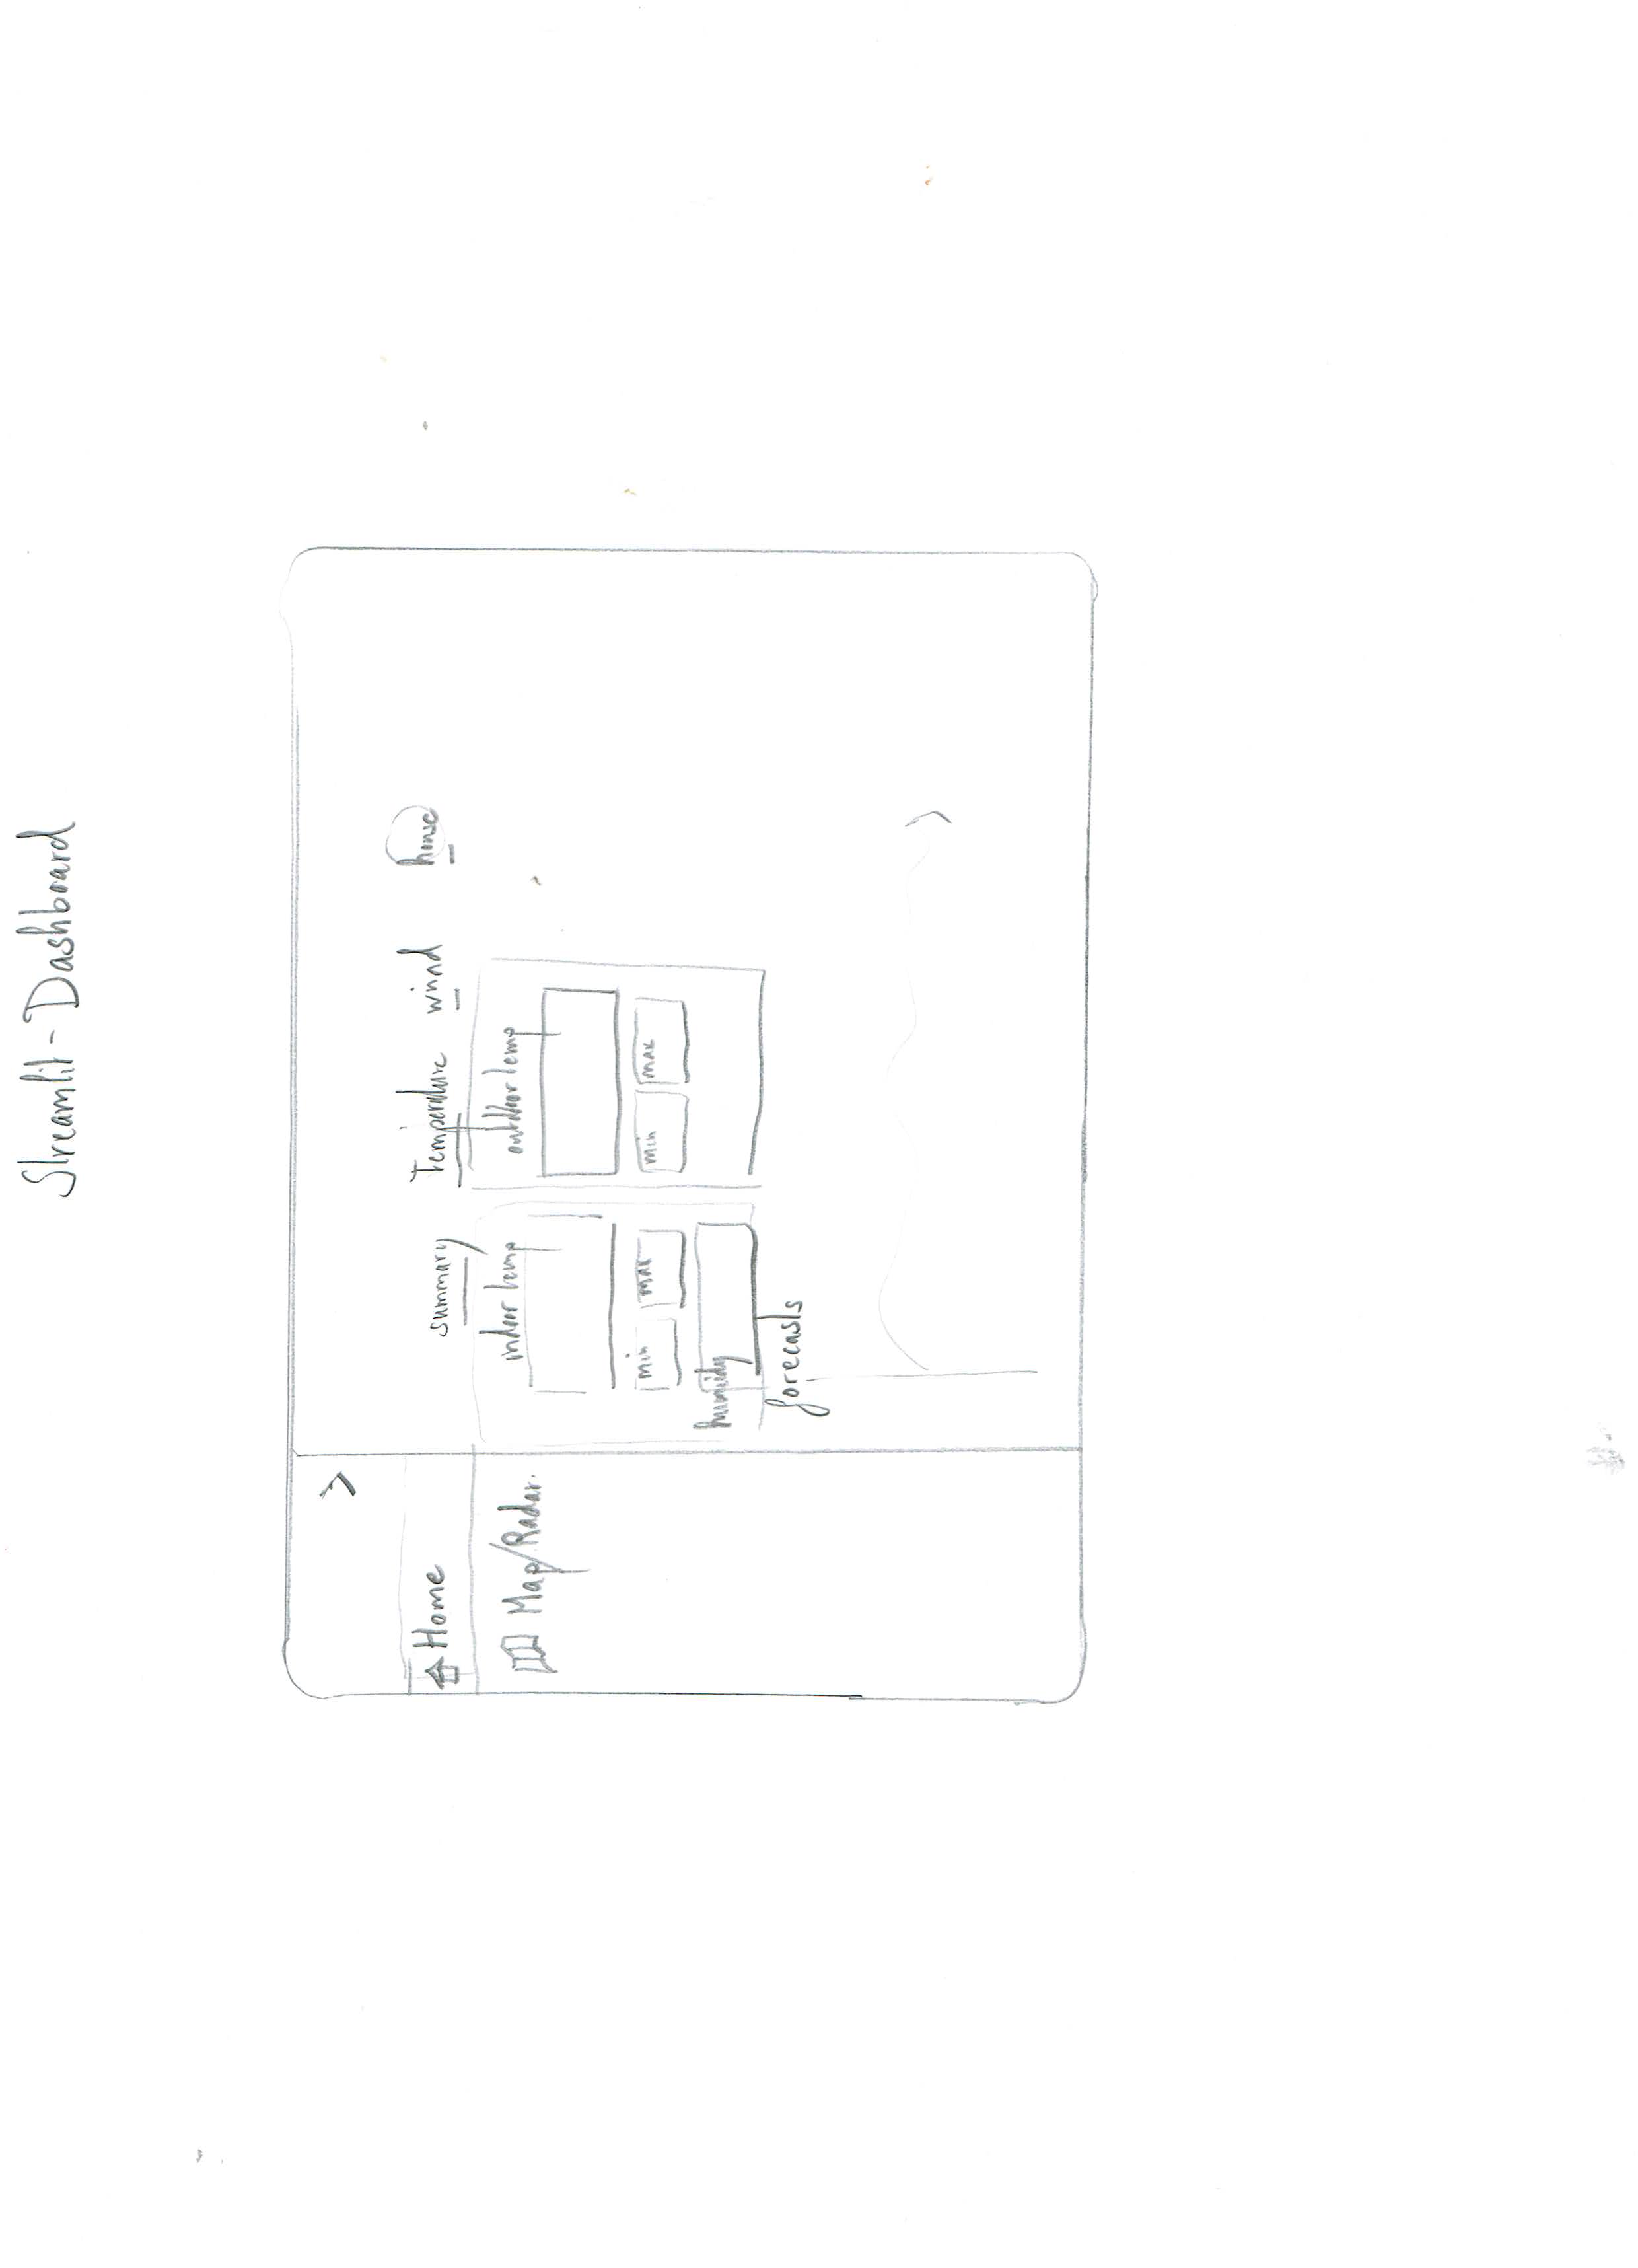 Streamlit-Dashboard
Home
Map/Radar.
summary Temperature wind house
indoor temp
min max
humidity
outdoor temp
min max
forecasts